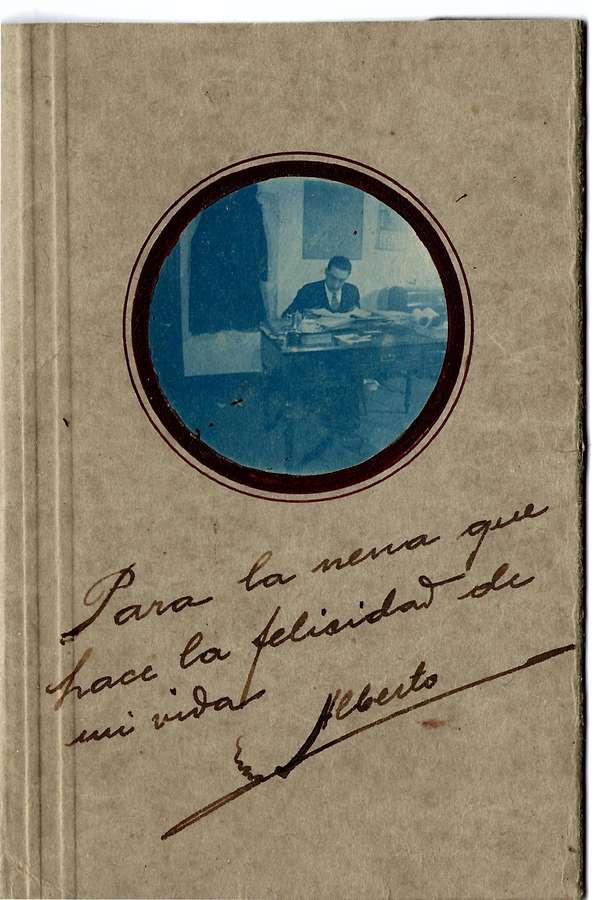 Para la nena que
hace la felicidad de
mi vida
Alberto